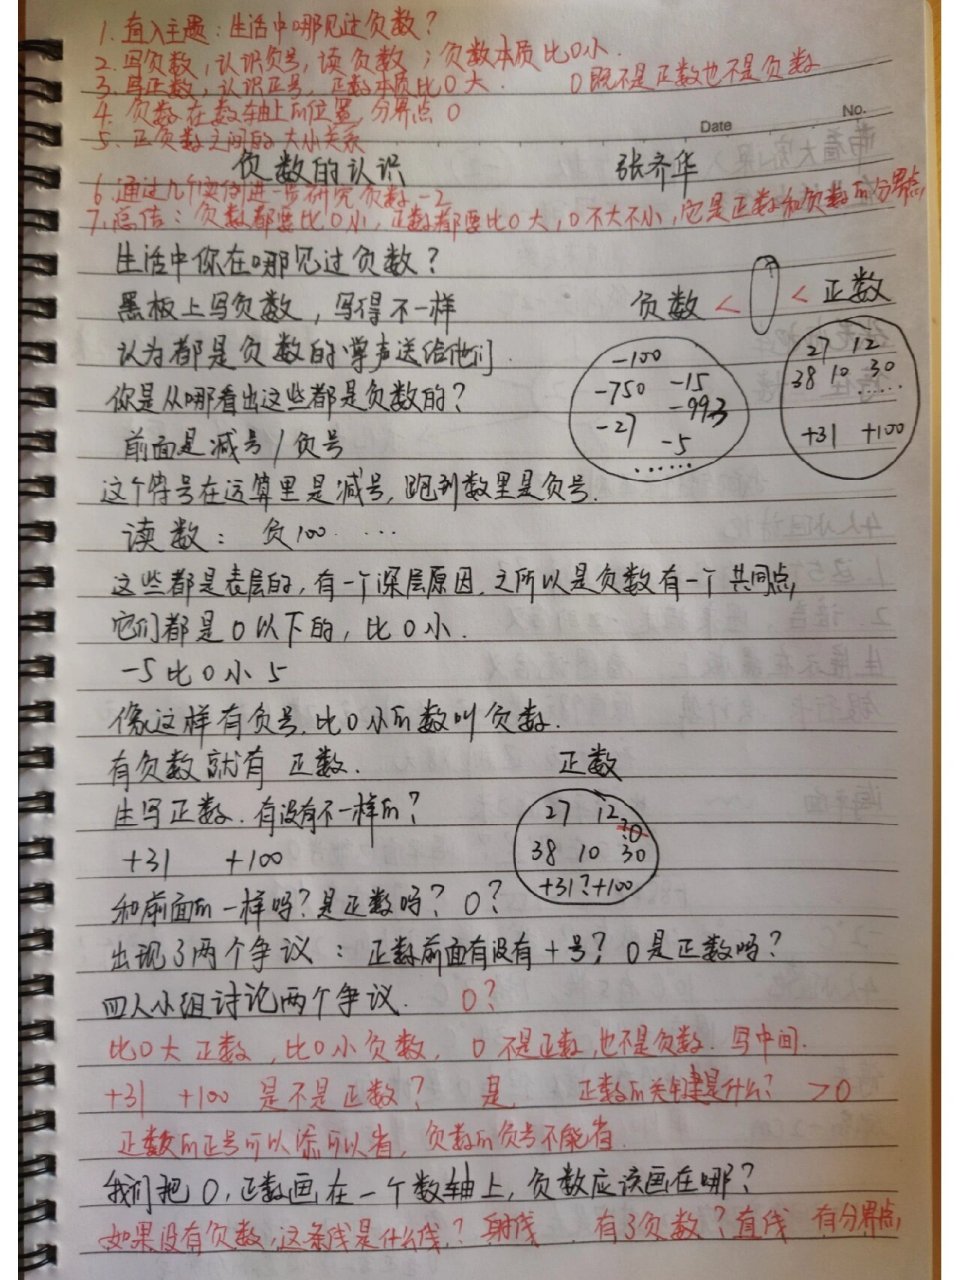 1. 直入主题：生活中哪见过负数？
2. 写负数，认识负号，读负数；负数本质比0小.
3. 写正数，认识正号，正数本质比0大. 0既不是正数也不是负数
4. 负数在数轴上的位置，分界点0
No.
Date
5. 正负数之间的大小关系
负数的认识 张齐华
6. 通过几个实例进一步研究负数-2
7. 总结：负数都要比0小，正数都要比0大，0不大不小，它是正数和负数的分界点，
生活中你在哪见过负数？
黑板上写负数，写得不一样
负数 < 0 < 正数
认为都是负数的掌声送给他们.
-100
-750 -15
-993
-27
-5
……
27 12
38 10 30
……
+31 +100
你是从哪看出这些都是负数的？
前面是减号/负号
这个符号在运算里是减号，跑到数里是负号.
读数： 负100 …
这些都是表层的，有一个深层原因，之所以是负数有一个共同点，
它们都是0以下的，比0小.
-5比0小5
像这样有负号，比0小的数叫负数.
有负数就有 正数.
正数
生写正数. 有没有不一样的？
27 12
?0
38 10 30
+31?+100
+31 +100
和前面的一样吗？是正数吗？ 0？
出现了两个争议：正数前面有没有+号？0是正数吗？
四人小组讨论两个争议. 0？
比0大 正数，比0小负数， 0 不是正数，也不是负数. 写中间.
+31 +100 是不是正数？ 是 正数的关键是什么？ >0
正数的正号可以添可以省，负数的负号不能省.
我们把0，正数画在一个数轴上，负数应该画在哪？
如果没有负数，这条线是什么线？ 射线 有了负数？直线 有分界点，